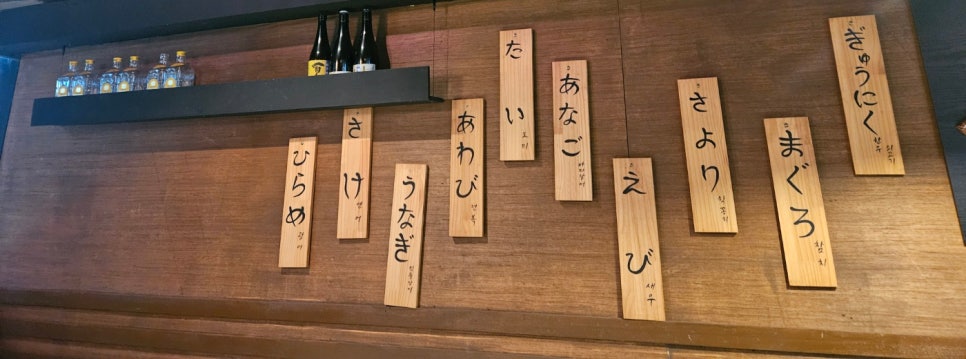 ひらめ
광어
さけ
연어
うなぎ
민물장어
あわび
전복
たい
도미
あなご
바다장어
えび
새우
さより
학꽁치
まぐろ
참치
ぎゅうにく